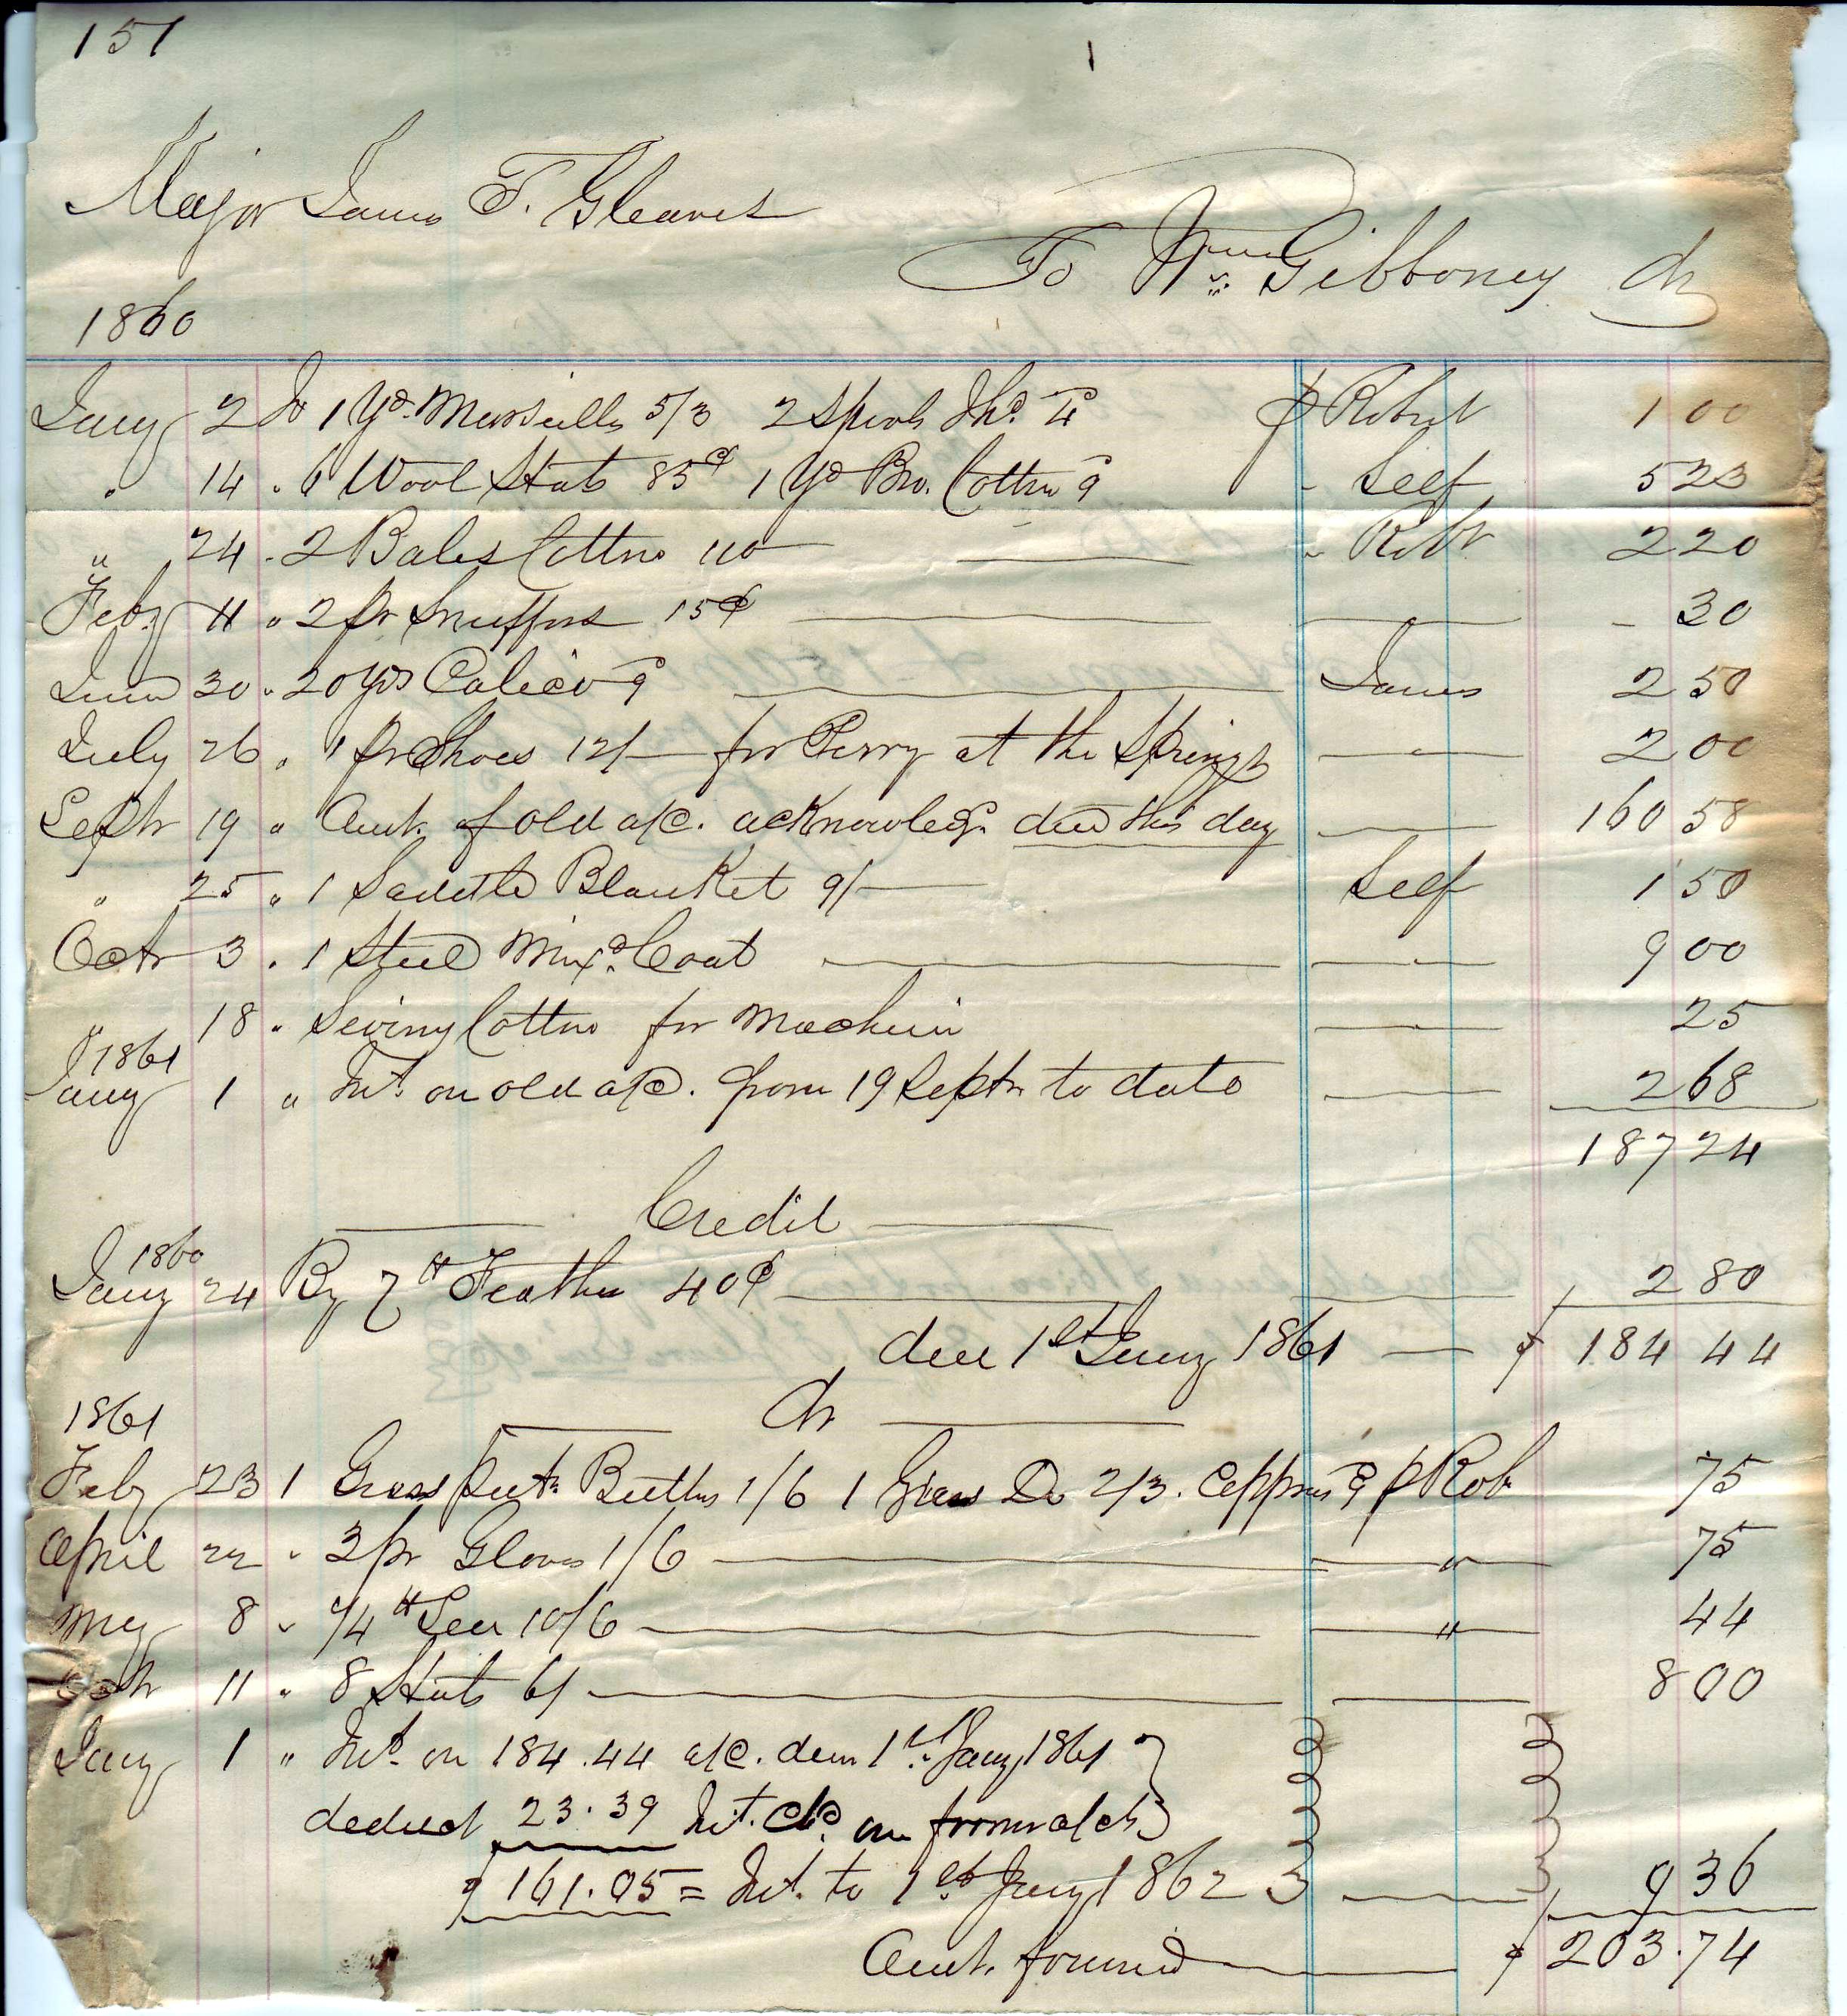 151
Major James T. Gleaves
To Wm. Gibboney Dr
1860
Jany 2 To 1 Yd. Marseills 5/3 2 Spools Thd. 4d $ Robert 1 00
" 14 " 6 Wool Hats 85¢ 1 Yd Bro. Cotton 9d " Self 5 23
" 24 " 2 Bales Cotton 110 " Robt 2 20
Feby 11 " 2 pr Snuffers 15¢ 30
June 30 " 20 Yds Calico 9d James 2 50
July 26 " 1 pr Shoes 12/ for Perry at the Springs " 2 00
Septr 19 " Amt. of old a/c. acknowledgd. due this day 160 58
" 25 " 1 Saddle Blanket 9/ Self 1 50
Octr 3 " 1 Steel Mixd. Coat " 9 00
" 18 " Sewing Cotton for Machine " 25
1861
Jany 1 " Int. on old a/c. from 19 Septr to date " 2 68
187 24
Credit
1860
Jany 24 By 7 lb Feathers 40¢ 2 80
due 1st Jany 1861 $ 184 44
Dr
1861
Feby 23 1 Gross Buttns 1/6 1 Gross Do 2/3. Coppras 9d $ Rob 75
April 22 " 3 pr Gloves 1/6 " 75
May 8 " 1/4 lb Tea 10/6 " 44
Octr 11 " 8 Hats 6/ 8 00
Jany 1 " Int. on 184.44 a/c. due 1st. Jany 1861
deduct 23.39 Int. &c. on former a/cts
$ 161.05 = Int. to 1st Jany 1862 9 36
Amt. forward $ 203.74